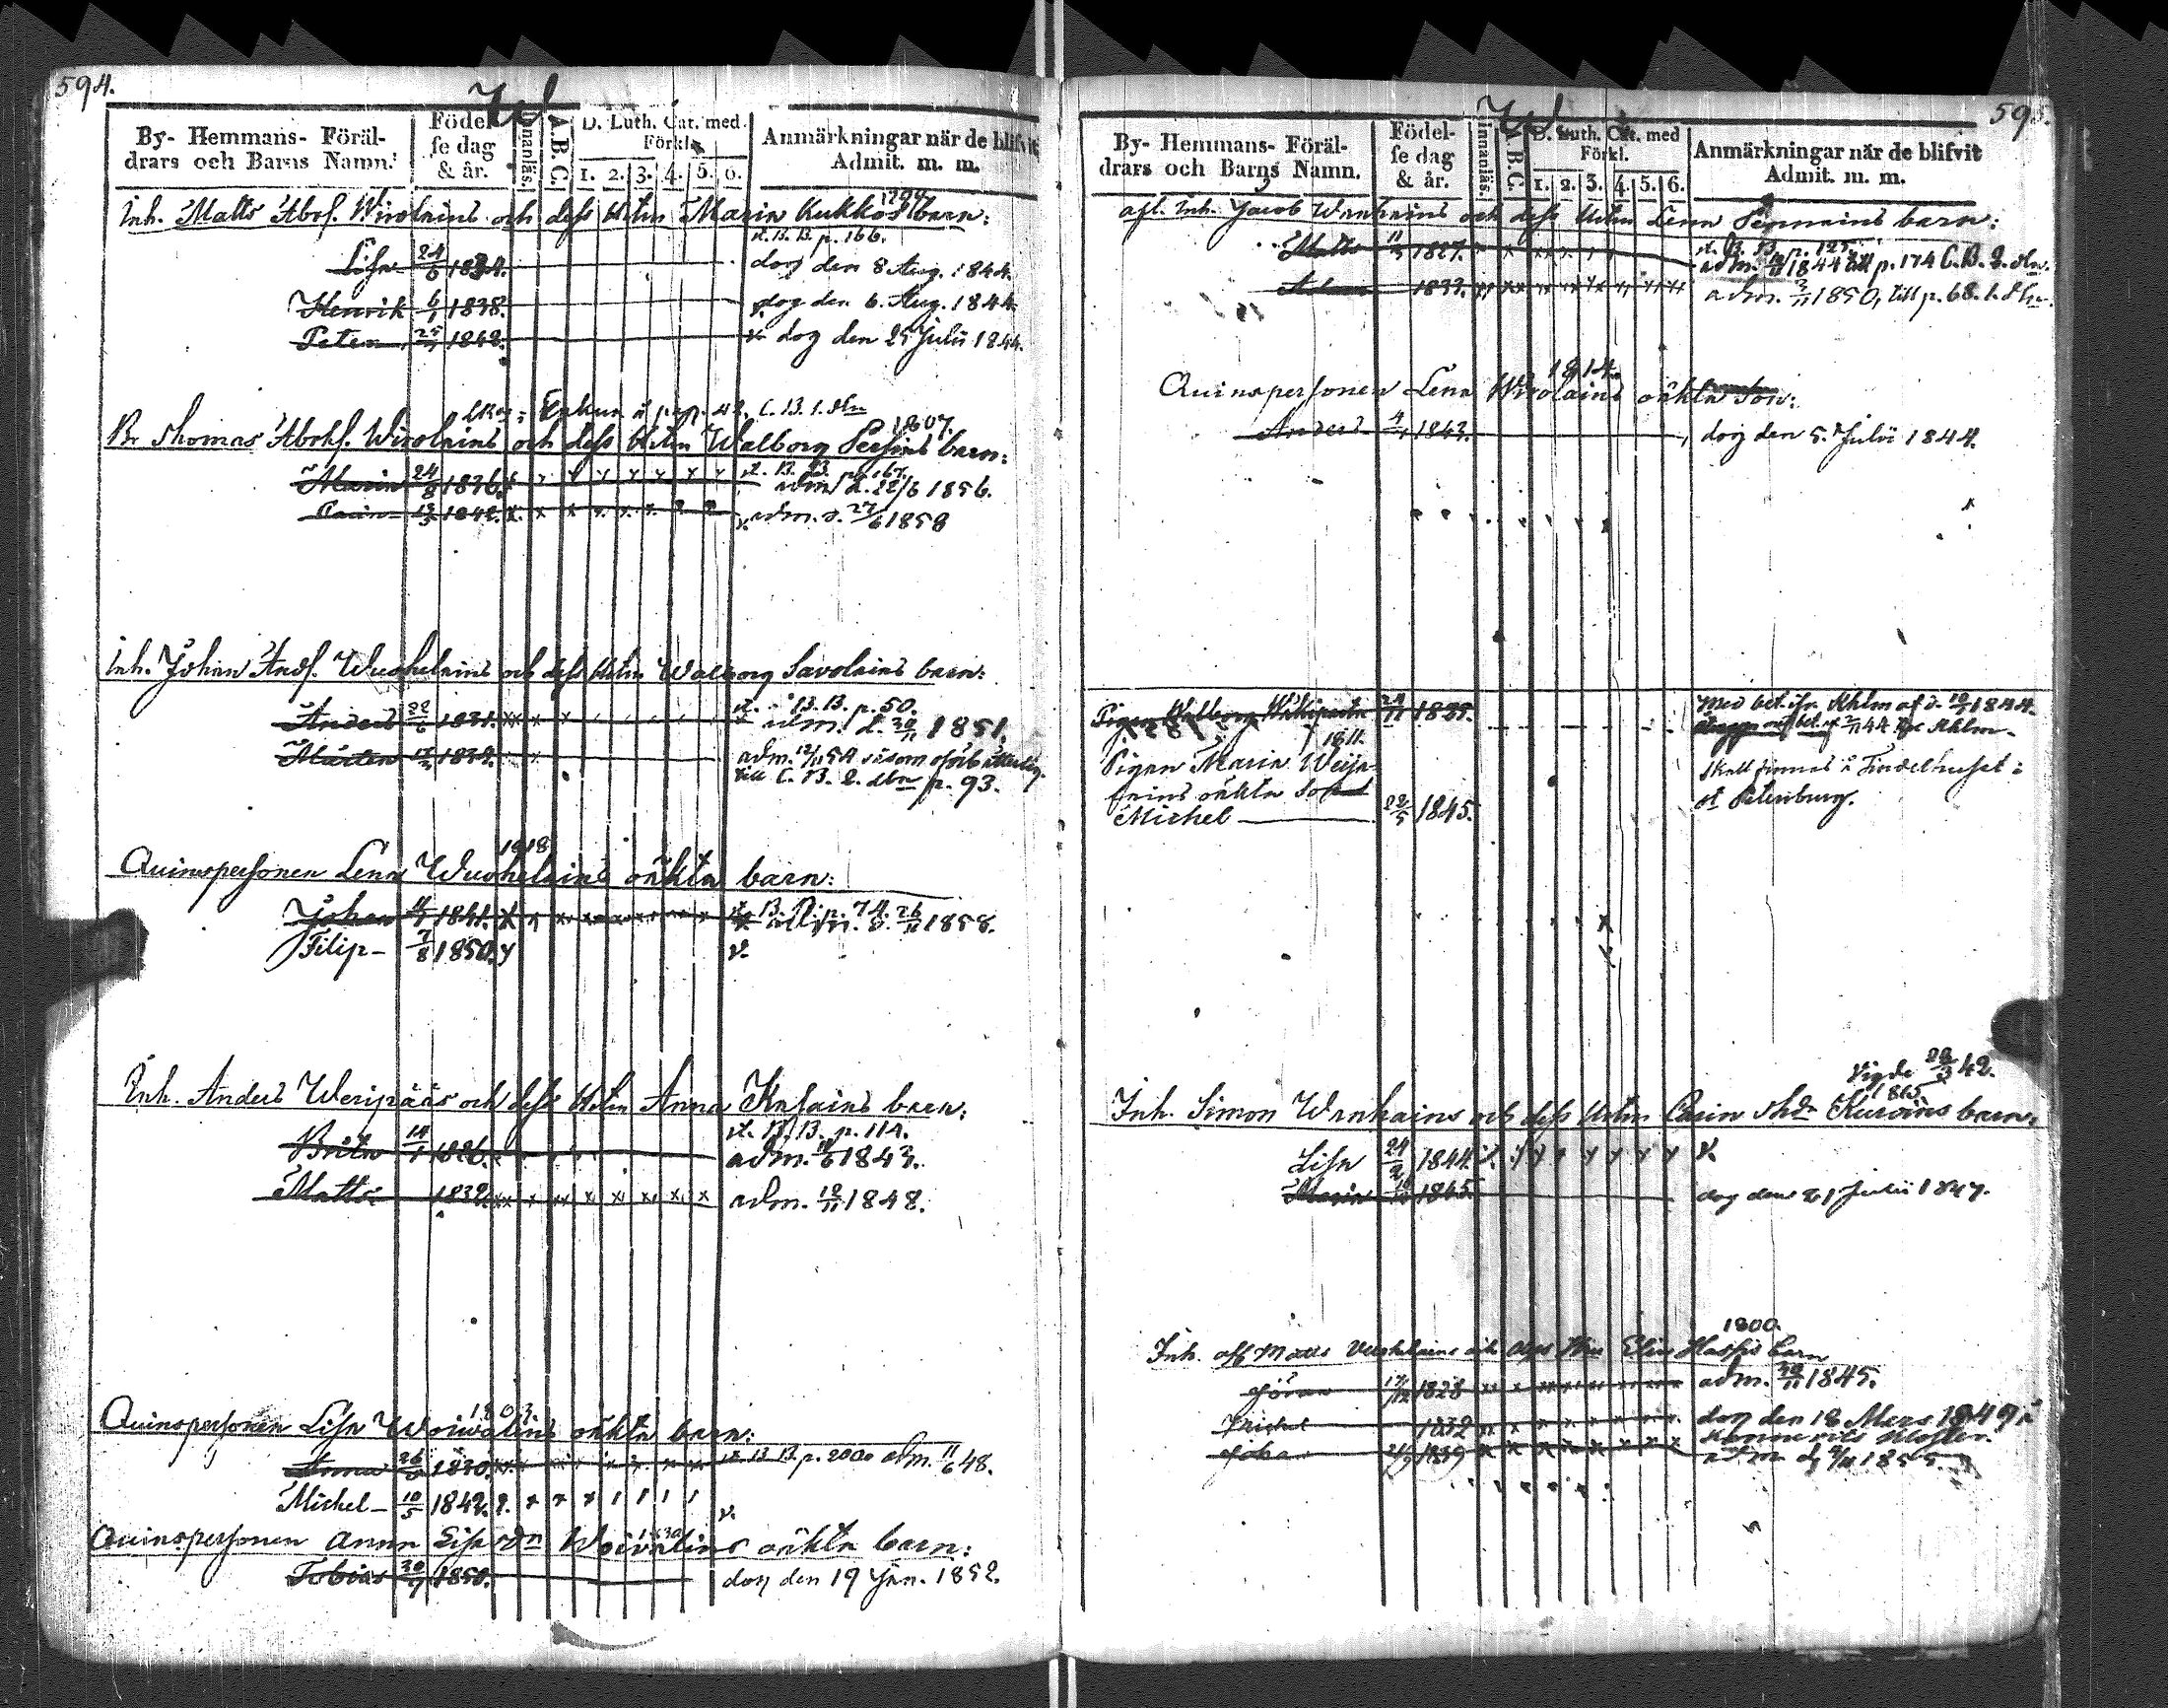 594.
W
By- Hemmans- Föräl-
drars och Barns Namn.
Födel-
se dag
& år.
Innanläs.
A.B.C.
D. Luth. Cat. med
Förkl.
1. 2. 3. 4. 5. 6.
Anmärkningar når de blifvit
Admit. m. m.
Inh. Matts Abrs. Wirolains och dess Hstru Maria Kukkos barn:
st. B. B. p. 166.
Lisa 24/6 1834. dog den 8 Aug. 1844.
Henrik 6/1 1838. dog den 6. Aug. 1844.
Peter 1842. dog den 25 Julii 1844.
1807.
Br Thomas Abrhs. Wirolains och dess Hstru Walborg Persins barn:
st. B. B. p. 167.
Maria 24/8 1836. adm. d. 22/6 1856.
Carin 1842. adm. d. 27/6 1858
Inh. Johan Ands. Wuohelains och dess Hstru Walborg Savolains barn:
st. B. B. p. 50.
Anders 22/6 1831. adm. d. 30/11 1851.
Mårten 1834. adm. 12/11 54 såsom
till C. B. 2. dln p. 93.
1818
Quinspersonen Lena Wuohelains oäkta barn:
st. B. B. p. 74.
Johan 4/7 1841. adm. d. 26/11 1858.
Filip - 7/8 1850.
Inh. Anders Weripääs och dess Hstru Anna Kasains barn:
st. B. B. p. 114.
Brita 14/1 1826. adm. 1843.
Matts 1832. adm. 12/11 1848.
1803.
Quinspersonen Lisa Woiwalins oäkta barn:
Anna 26 1830. st. B. B. p. 200 adm. 11/6 48.
Michel - 10/5 1842.
Quinspersonen Anna Lisa dn Woivalins oäkta barn:
Tobias 30/9 1850. dog den 19 Jan. 1852.
595.
W
By- Hemmans- Föräl-
drars och Barns Namn.
Födel-
se dag
& år.
Innanläs.
A.B.C
D. Luth. Cat. med
Förkl.
1. 2. 3. 4. 5. 6.
Anmärkningar når de blifvit
Admit. m. m.
afl. Inh. Jacob Wanhains och dess Hstru Lena Pennains barn:
st. B. B. p. 125.
Matts 11 1827. adm. 1844 till p. 174 C. B. 2. dln.
Adam 1833. adm. 3/11 1850, till p. 68. 1. dln.
1814.
Quinspersonen Lena Wirolains oäkta Son:
Anders 4 1843. dog den 5. Julii 1844.
Pigan Walborg 24/11 1835. Med bet. fr. Khlm af d. 1844.
1811.
Pigan Maria Weija-
lains oäkta Son
skall finnas i Findelhuset i
Michel 22/5 1845.
St Petersburg.
Vigde 42.
Inh. Simon Wanhains och dess Hstru Carin Kurvins barn:
Lisa 24/2 1844.
Maria 1845. dog den 21 Julii 1847.
1800.
Inh. afl Matts Wuohelains och dess Hstru Elin Hassis barn
Göran 17/12 1828 adm. 30/11 1845.
Michel 1832 dog den 18 Mars 1849 i
Johan 24/9 1839 adm d. 4/11 1855.